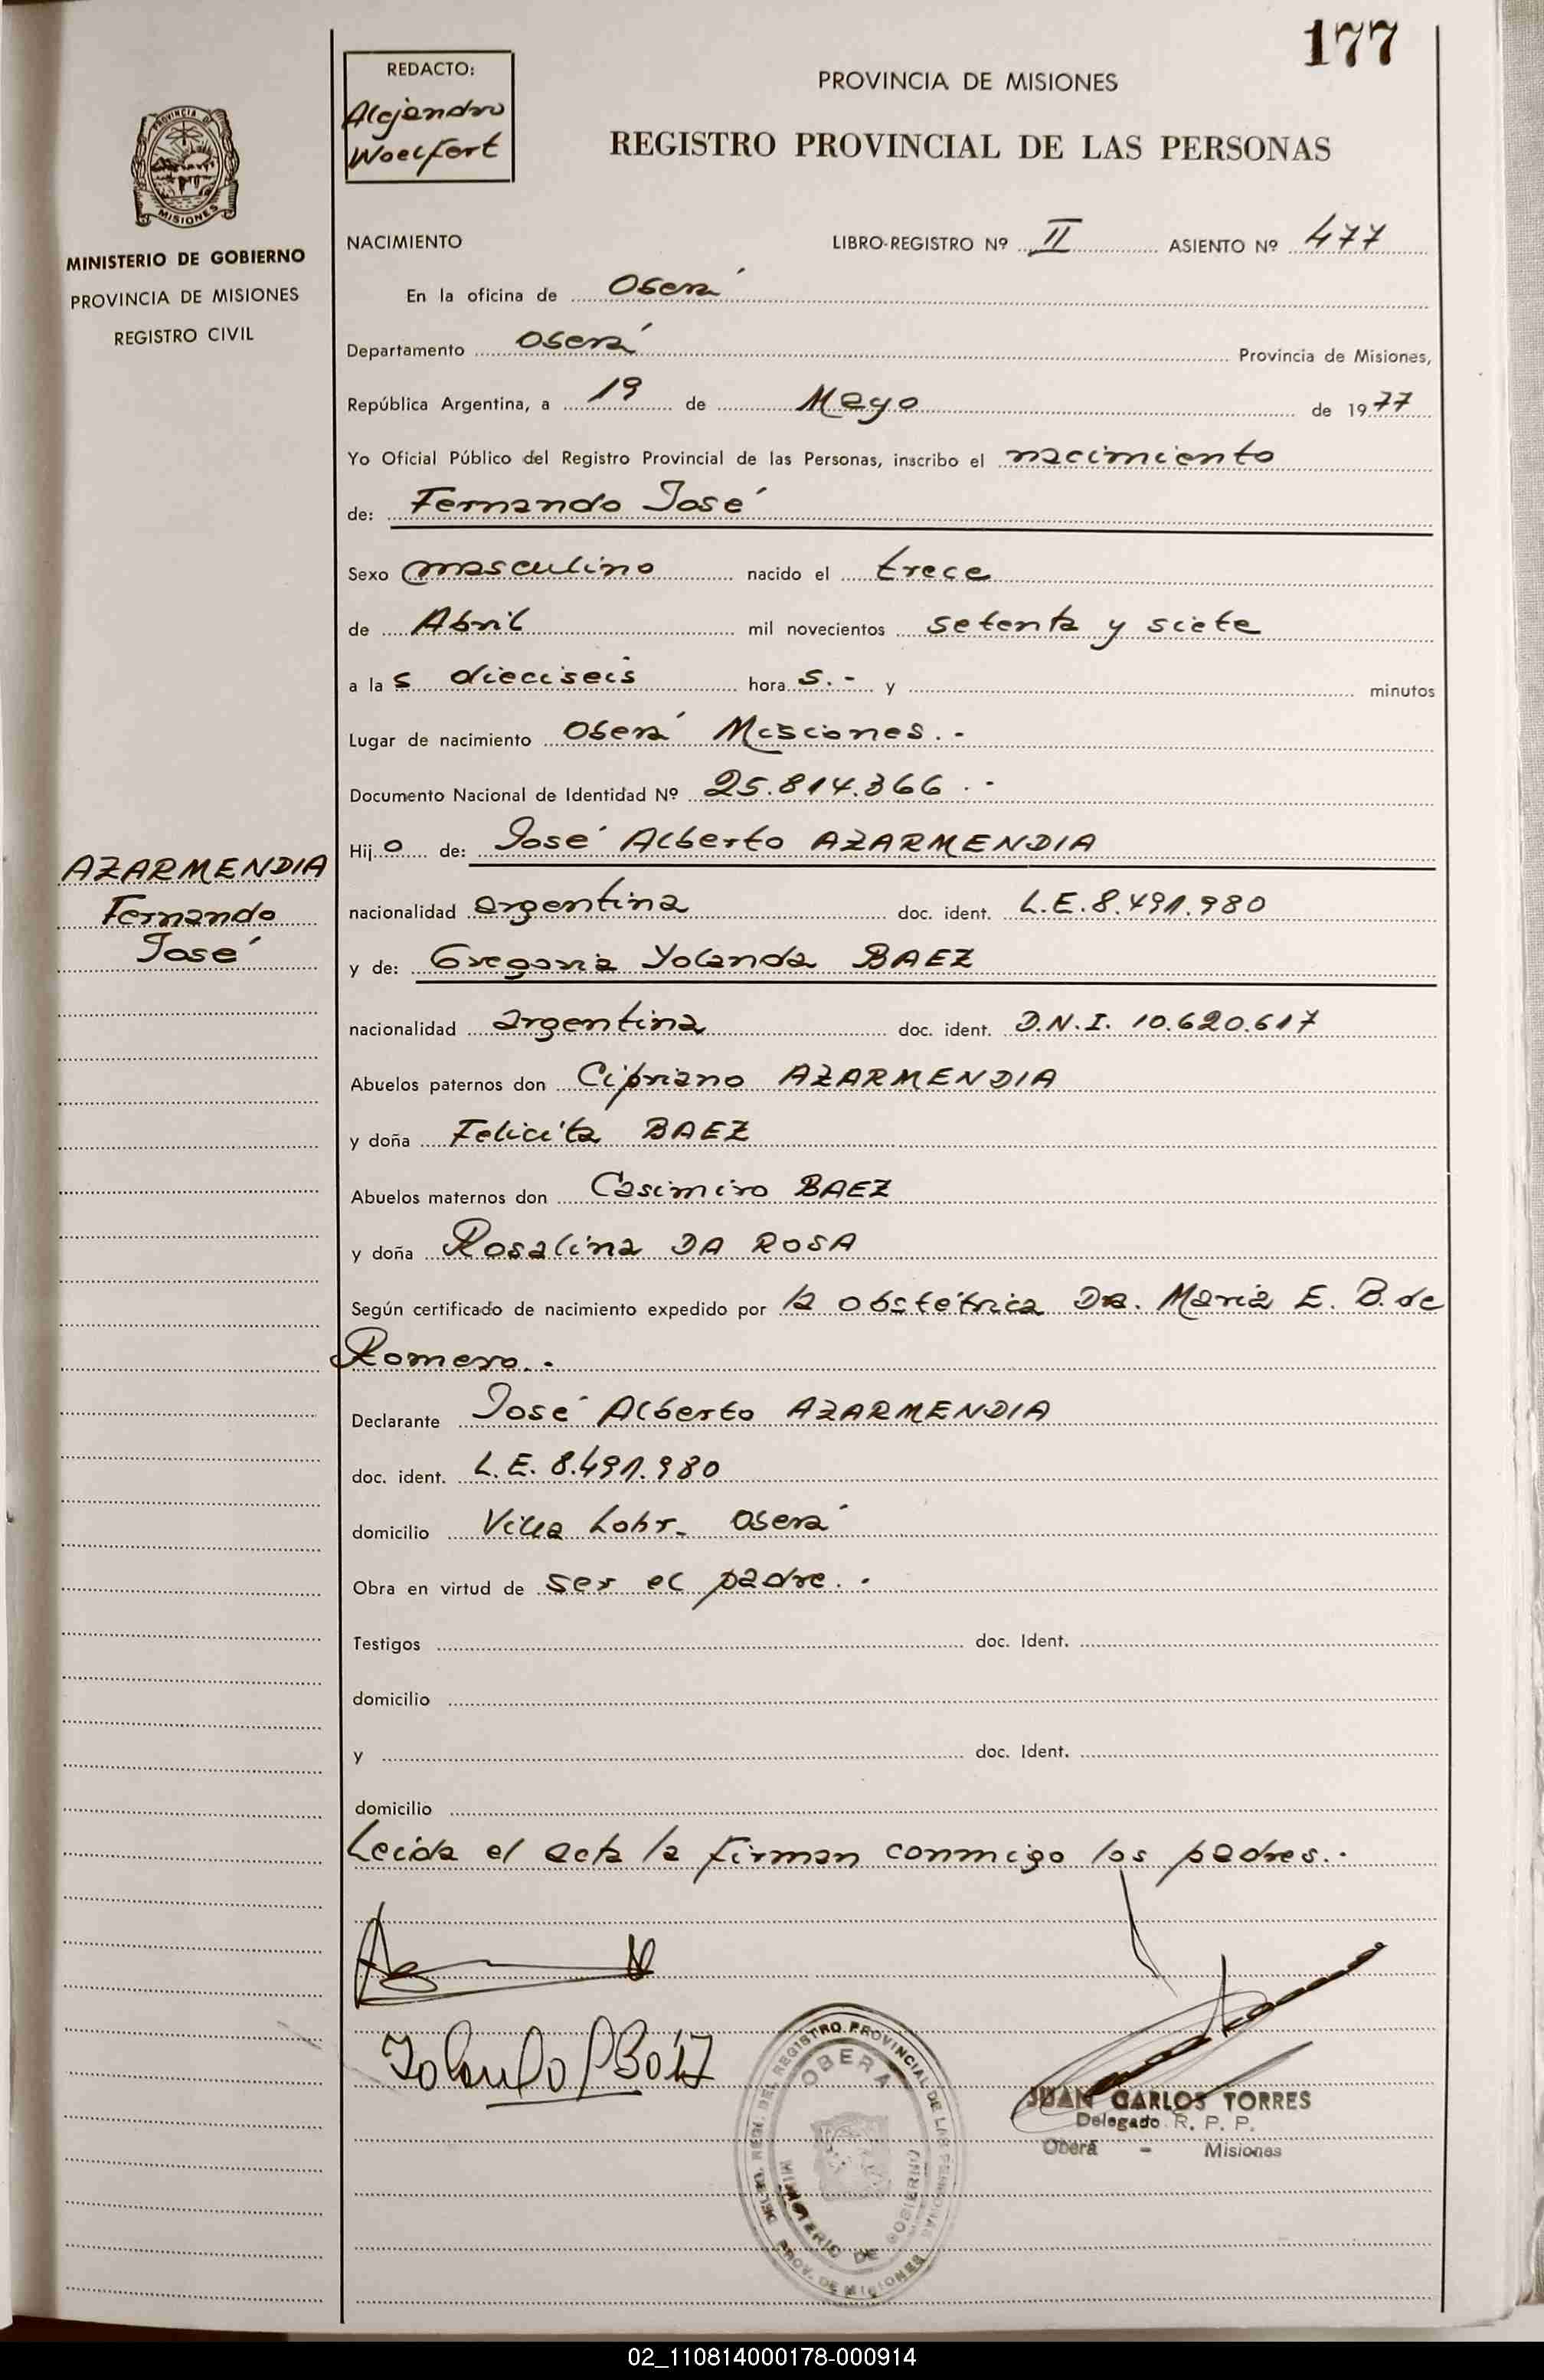 177
REDACTO:
Alejandro
Woelfert
PROVINCIA DE MISIONES
REGISTRO PROVINCIAL DE LAS PERSONAS
PROVINCIA D
MISIONES
MINISTERIO DE GOBIERNO
PROVINCIA DE MISIONES
REGISTRO CIVIL
NACIMIENTO LIBRO-REGISTRO Nº II ASIENTO Nº 477
En la oficina de Oberá
Departamento Oberá Provincia de Misiones,
República Argentina, a 19 de Mayo de 1977
Yo Oficial Público del Registro Provincial de las Personas, inscribo el nacimiento
de: Fernando José
Sexo masculino nacido el trece
de Abril mil novecientos setenta y siete
a las dieciseis horas.- y minutos
Lugar de nacimiento Oberá Misiones.-
Documento Nacional de Identidad Nº 25.814.366.-
Hijo de: José Alberto AZARMENDIA
AZARMENDIA
Fernando
José
nacionalidad argentina doc. ident. L.E.8.491.980
y de: Gregoria Yolanda BAEZ
nacionalidad argentina doc. ident. D.N.I. 10.620.617
Abuelos paternos don Cipriano AZARMENDIA
y doña Felicíta BAEZ
Abuelos maternos don Casimiro BAEZ
y doña Rosalina DA ROSA
Según certificado de nacimiento expedido por la obstétrica Dra. María E. B. de
Romero.-
Declarante José Alberto AZARMENDIA
doc. ident. L.E. 8.491.980
domicilio Villa Lohr- Oberá
Obra en virtud de ser el padre.-
Testigos doc. Ident.
domicilio
y doc. Ident.
domicilio
Leída el acta la firman conmigo los padres.-
DELEG. DEL REGISTRO PROVINCIAL DE LAS PERSONAS
OBERA
MINISTERIO DE GOBIERNO
PROV. DE MISIONES
JUAN CARLOS TORRES
Delegado R. P. P.
Oberá - Misiones
02_110814000178-000914